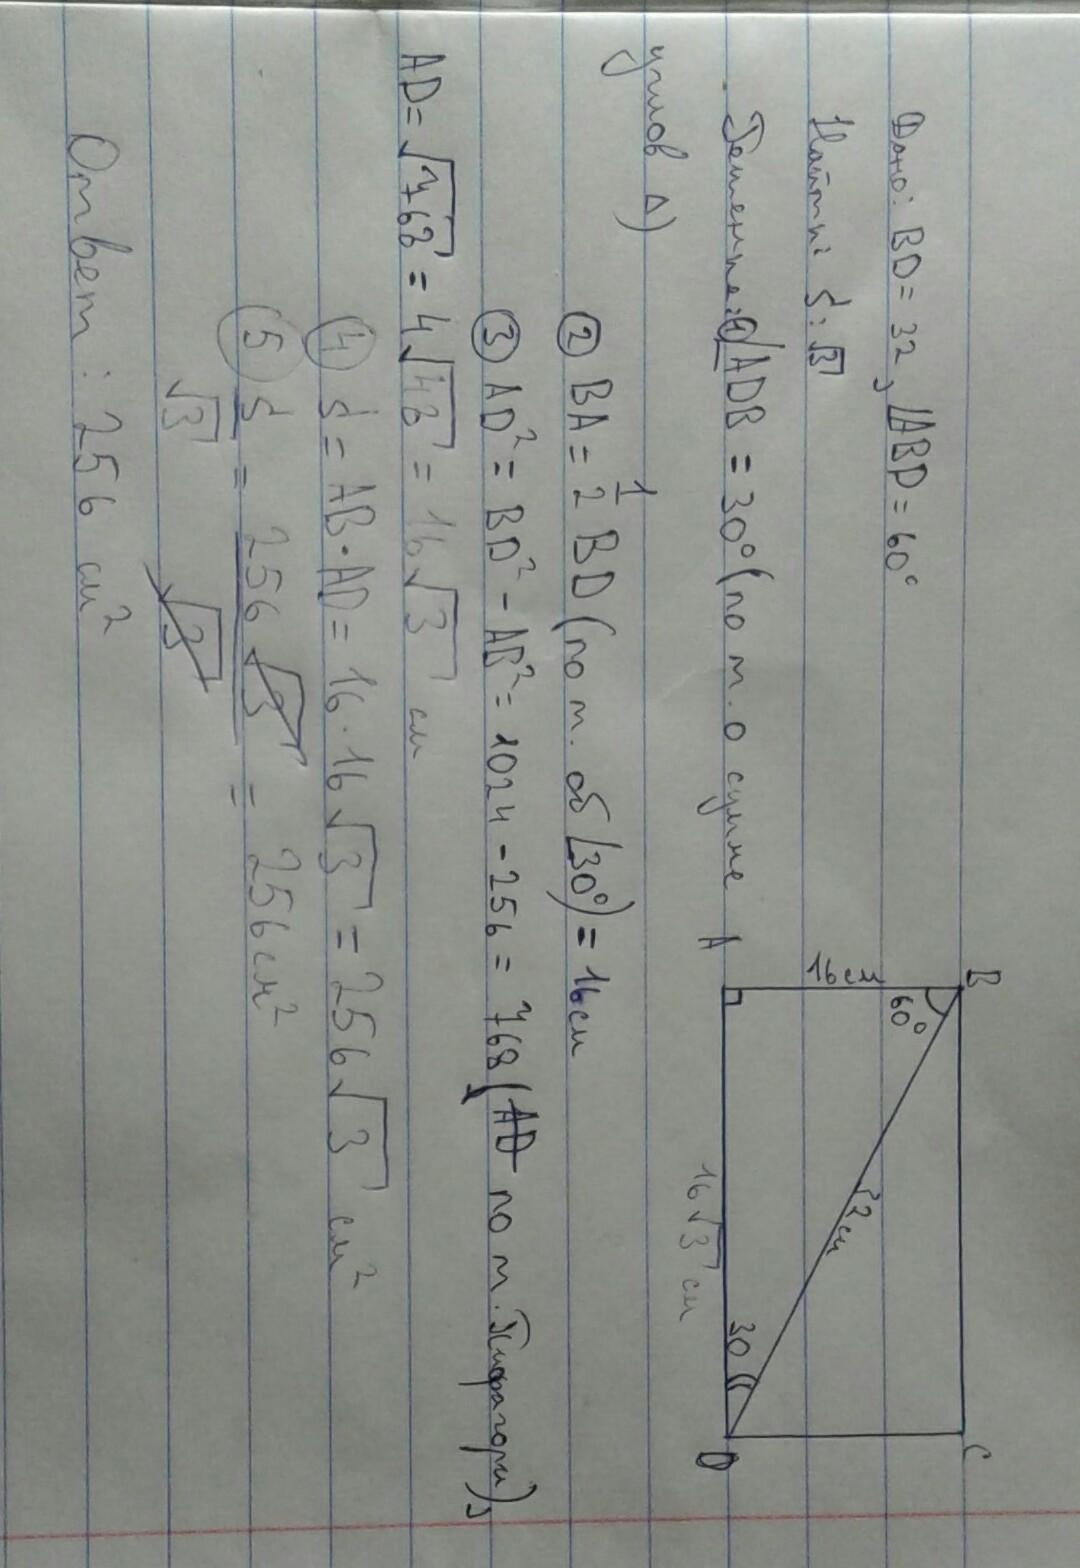 Дано: BD = 32, ∠ABD = 60°
Найти: S: √3
Решение: ① ∠ADB = 30° (по т. о сумме
углов Δ)
② BA = 1/2 BD (по т. об ∠30°) = 16 см
③ AD² = BD² - AB² = 1024 - 256 = 768 (AD по т. Пифагора),
AD = √768 = 4√48 = 16√3 см
④ S = AB · AD = 16 · 16√3 = 256√3 см²
⑤ S/√3 = 256√3/√3 = 256 см²
Ответ: 256 см²
B
C
A
D
60°
16 см
32 см
30
16√3 см